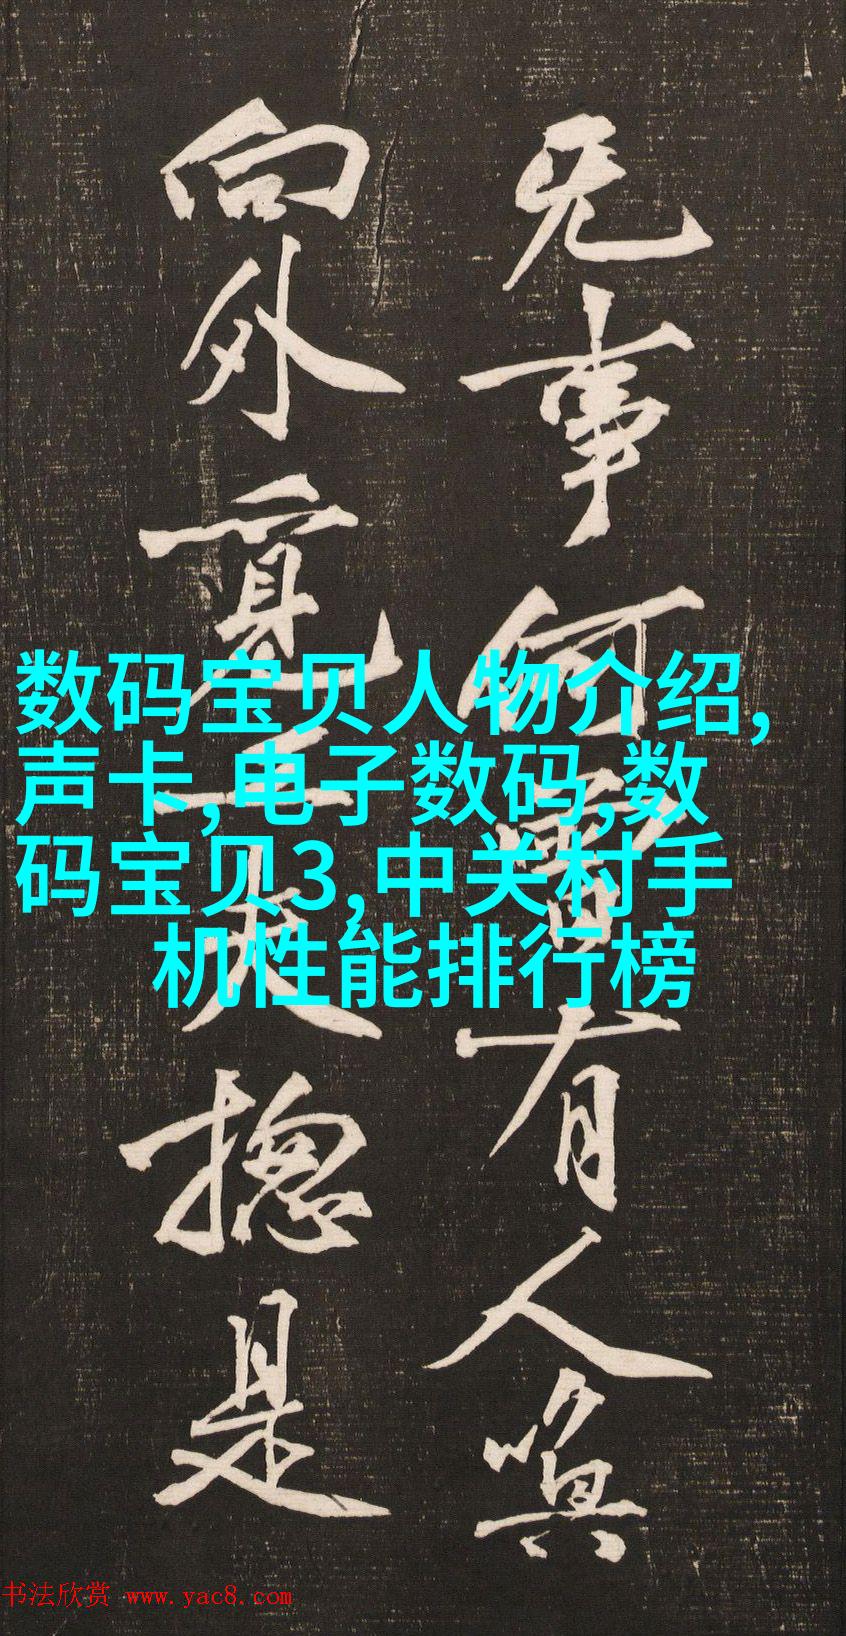 无事何有人嗔
向外覓工夫揔是
数码宝贝人物介绍,
声卡,电子数码,数
码宝贝3,中关村手
机性能排行榜
书法欣赏 www.yac8.com